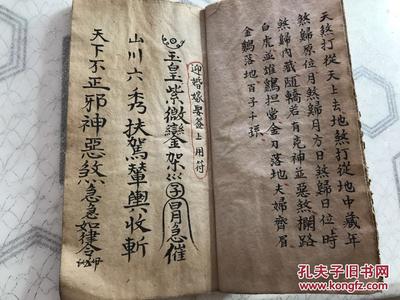 天煞打從天上去地煞打從地中藏年
煞歸原位月煞歸月方日煞歸日位時
煞歸內藏随轎若有兇神並惡煞攔路
白虎並雄鷄担當金刀落地夫婦齊眉
金鷄落地百子千孫
迎婚嫁娶簽上用符
玉皇紫微鑾駕
急催
山川六秀扶駕輦輿收斬
天下不正邪神惡煞急急如律令
孔夫子旧书网